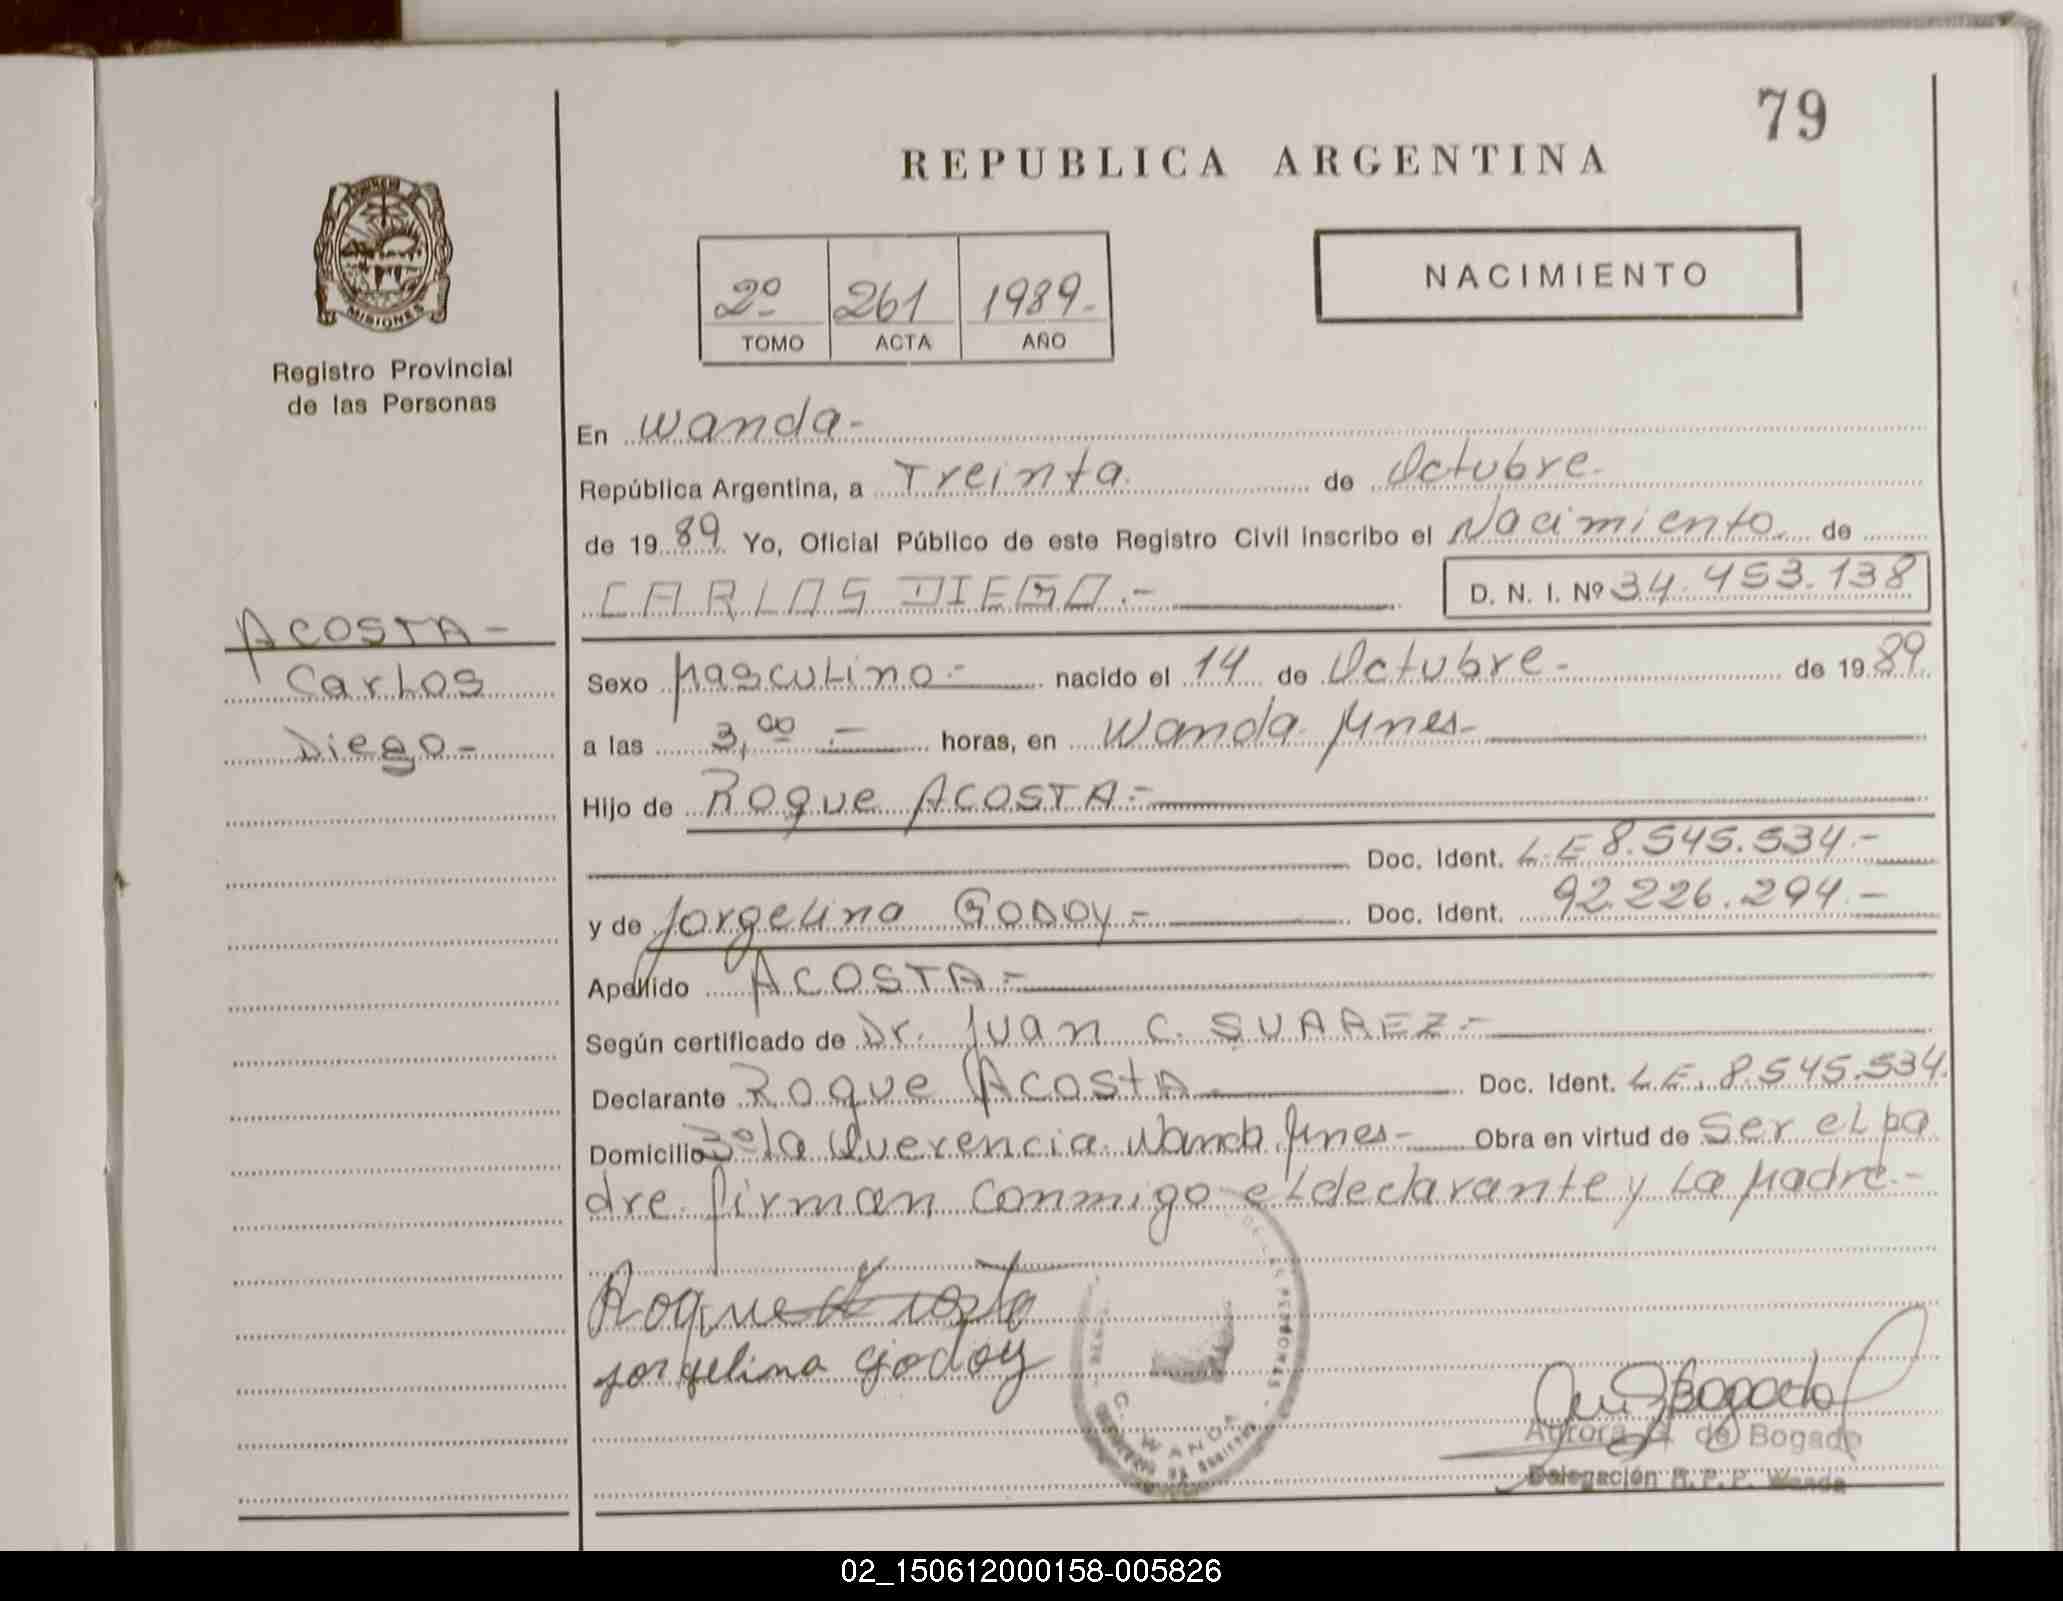 79
REPUBLICA ARGENTINA
NACIMIENTO
2º 261 1989-
TOMO ACTA AÑO
MISIONES
Registro Provincial
de las Personas
En Wanda-
República Argentina, a Treinta de Octubre-
de 1989 Yo, Oficial Público de este Registro Civil inscribo el Nacimiento de
CARLOS DIEGO.- D. N. I. Nº 34.453.138
ACOSTA-
Carlos
Diego-
Sexo Masculino- nacido el 14 de Octubre- de 1989
a las 3,00 - horas, en Wanda Mnes-
Hijo de Roque ACOSTA-
Doc. Ident. L.E 8.545.534.-
y de Jorgelina GODOY- Doc. Ident. 92.226.294.-
Apellido ACOSTA-
Según certificado de Dr. Juan C. SUAREZ-
Declarante Roque Acosta Doc. Ident. L.E. 8.545.534.
Domicilio Bº la Querencia Wanda Mnes- Obra en virtud de Ser el pa
dre firman conmigo el declarante y La Madre.-
Roque Acosta
jorgelina godoy
WANDA
de Bogado
Delegación R. P. P. Wanda
02_150612000158-005826